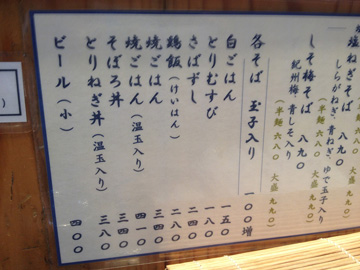 塩ねぎそば 八九〇
しらがねぎ・青ねぎ・ゆで玉子入り
(半麺 六八〇 大盛 九九〇)
しそ梅そば 八九〇
紀州梅、青しそ入り
(半麺 六八〇 大盛 九九〇)
各そば 玉子入り 一〇〇増
白ごはん 一五〇
とりむすび 一八〇
さばずし 二四〇
鶏飯(けいはん) 二八〇
焼ごはん 三四〇
焼ごはん(温玉入り) 四一〇
そぼろ丼 三四〇
とりねぎ丼(温玉入り) 三八〇
ビール(小) 四〇〇